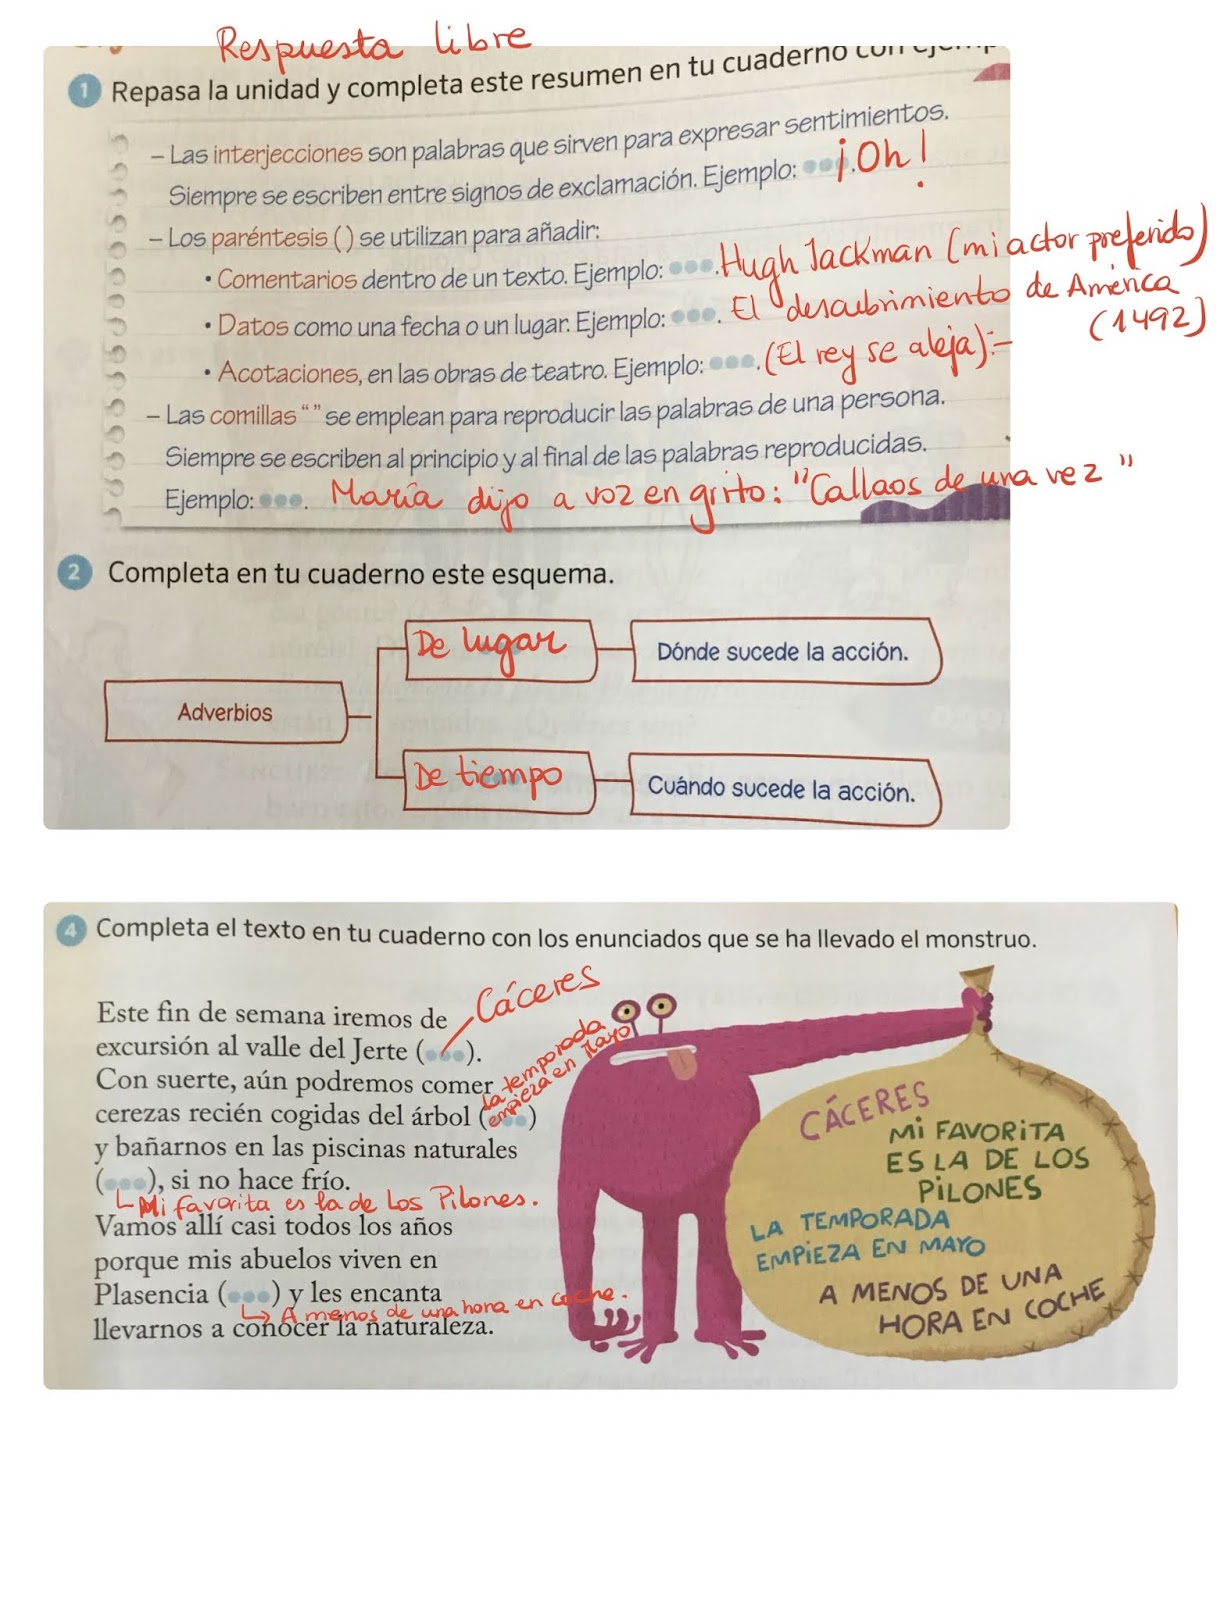 Respuesta libre
1 Repasa la unidad y completa este resumen en tu cuaderno con
– Las interjecciones son palabras que sirven para expresar sentimientos.
Siempre se escriben entre signos de exclamación. Ejemplo: ●●●. ¡Oh!
– Los paréntesis ( ) se utilizan para añadir:
• Comentarios dentro de un texto. Ejemplo: ●●●. Hugh Jackman (mi actor preferido)
• Datos como una fecha o un lugar. Ejemplo: ●●●. El descubrimiento de América
(1492)
• Acotaciones, en las obras de teatro. Ejemplo: ●●●. (El rey se aleja):-
– Las comillas “ ” se emplean para reproducir las palabras de una persona.
Siempre se escriben al principio y al final de las palabras reproducidas.
Ejemplo: ●●●. María dijo a voz en grito: "Callaos de una vez"
2 Completa en tu cuaderno este esquema.
De lugar
Dónde sucede la acción.
Adverbios
De tiempo
Cuándo sucede la acción.
4 Completa el texto en tu cuaderno con los enunciados que se ha llevado el monstruo.
Cáceres
Este fin de semana iremos de
excursión al valle del Jerte (●●●).
Con suerte, aún podremos comer
La temporada
empieza en Mayo
cerezas recién cogidas del árbol (●●●)
y bañarnos en las piscinas naturales
(●●●), si no hace frío.
Mi favorita es la de Los Pilones.
Vamos allí casi todos los años
porque mis abuelos viven en
Plasencia (●●●) y les encanta
A menos de una hora en coche.
llevarnos a conocer la naturaleza.
CÁCERES
Mi FAVORiTA
ES LA DE LOS
PiLONES
LA TEMPORADA
EMPiEZA EN MAYO
A MENOS DE UNA
HORA EN COCHE